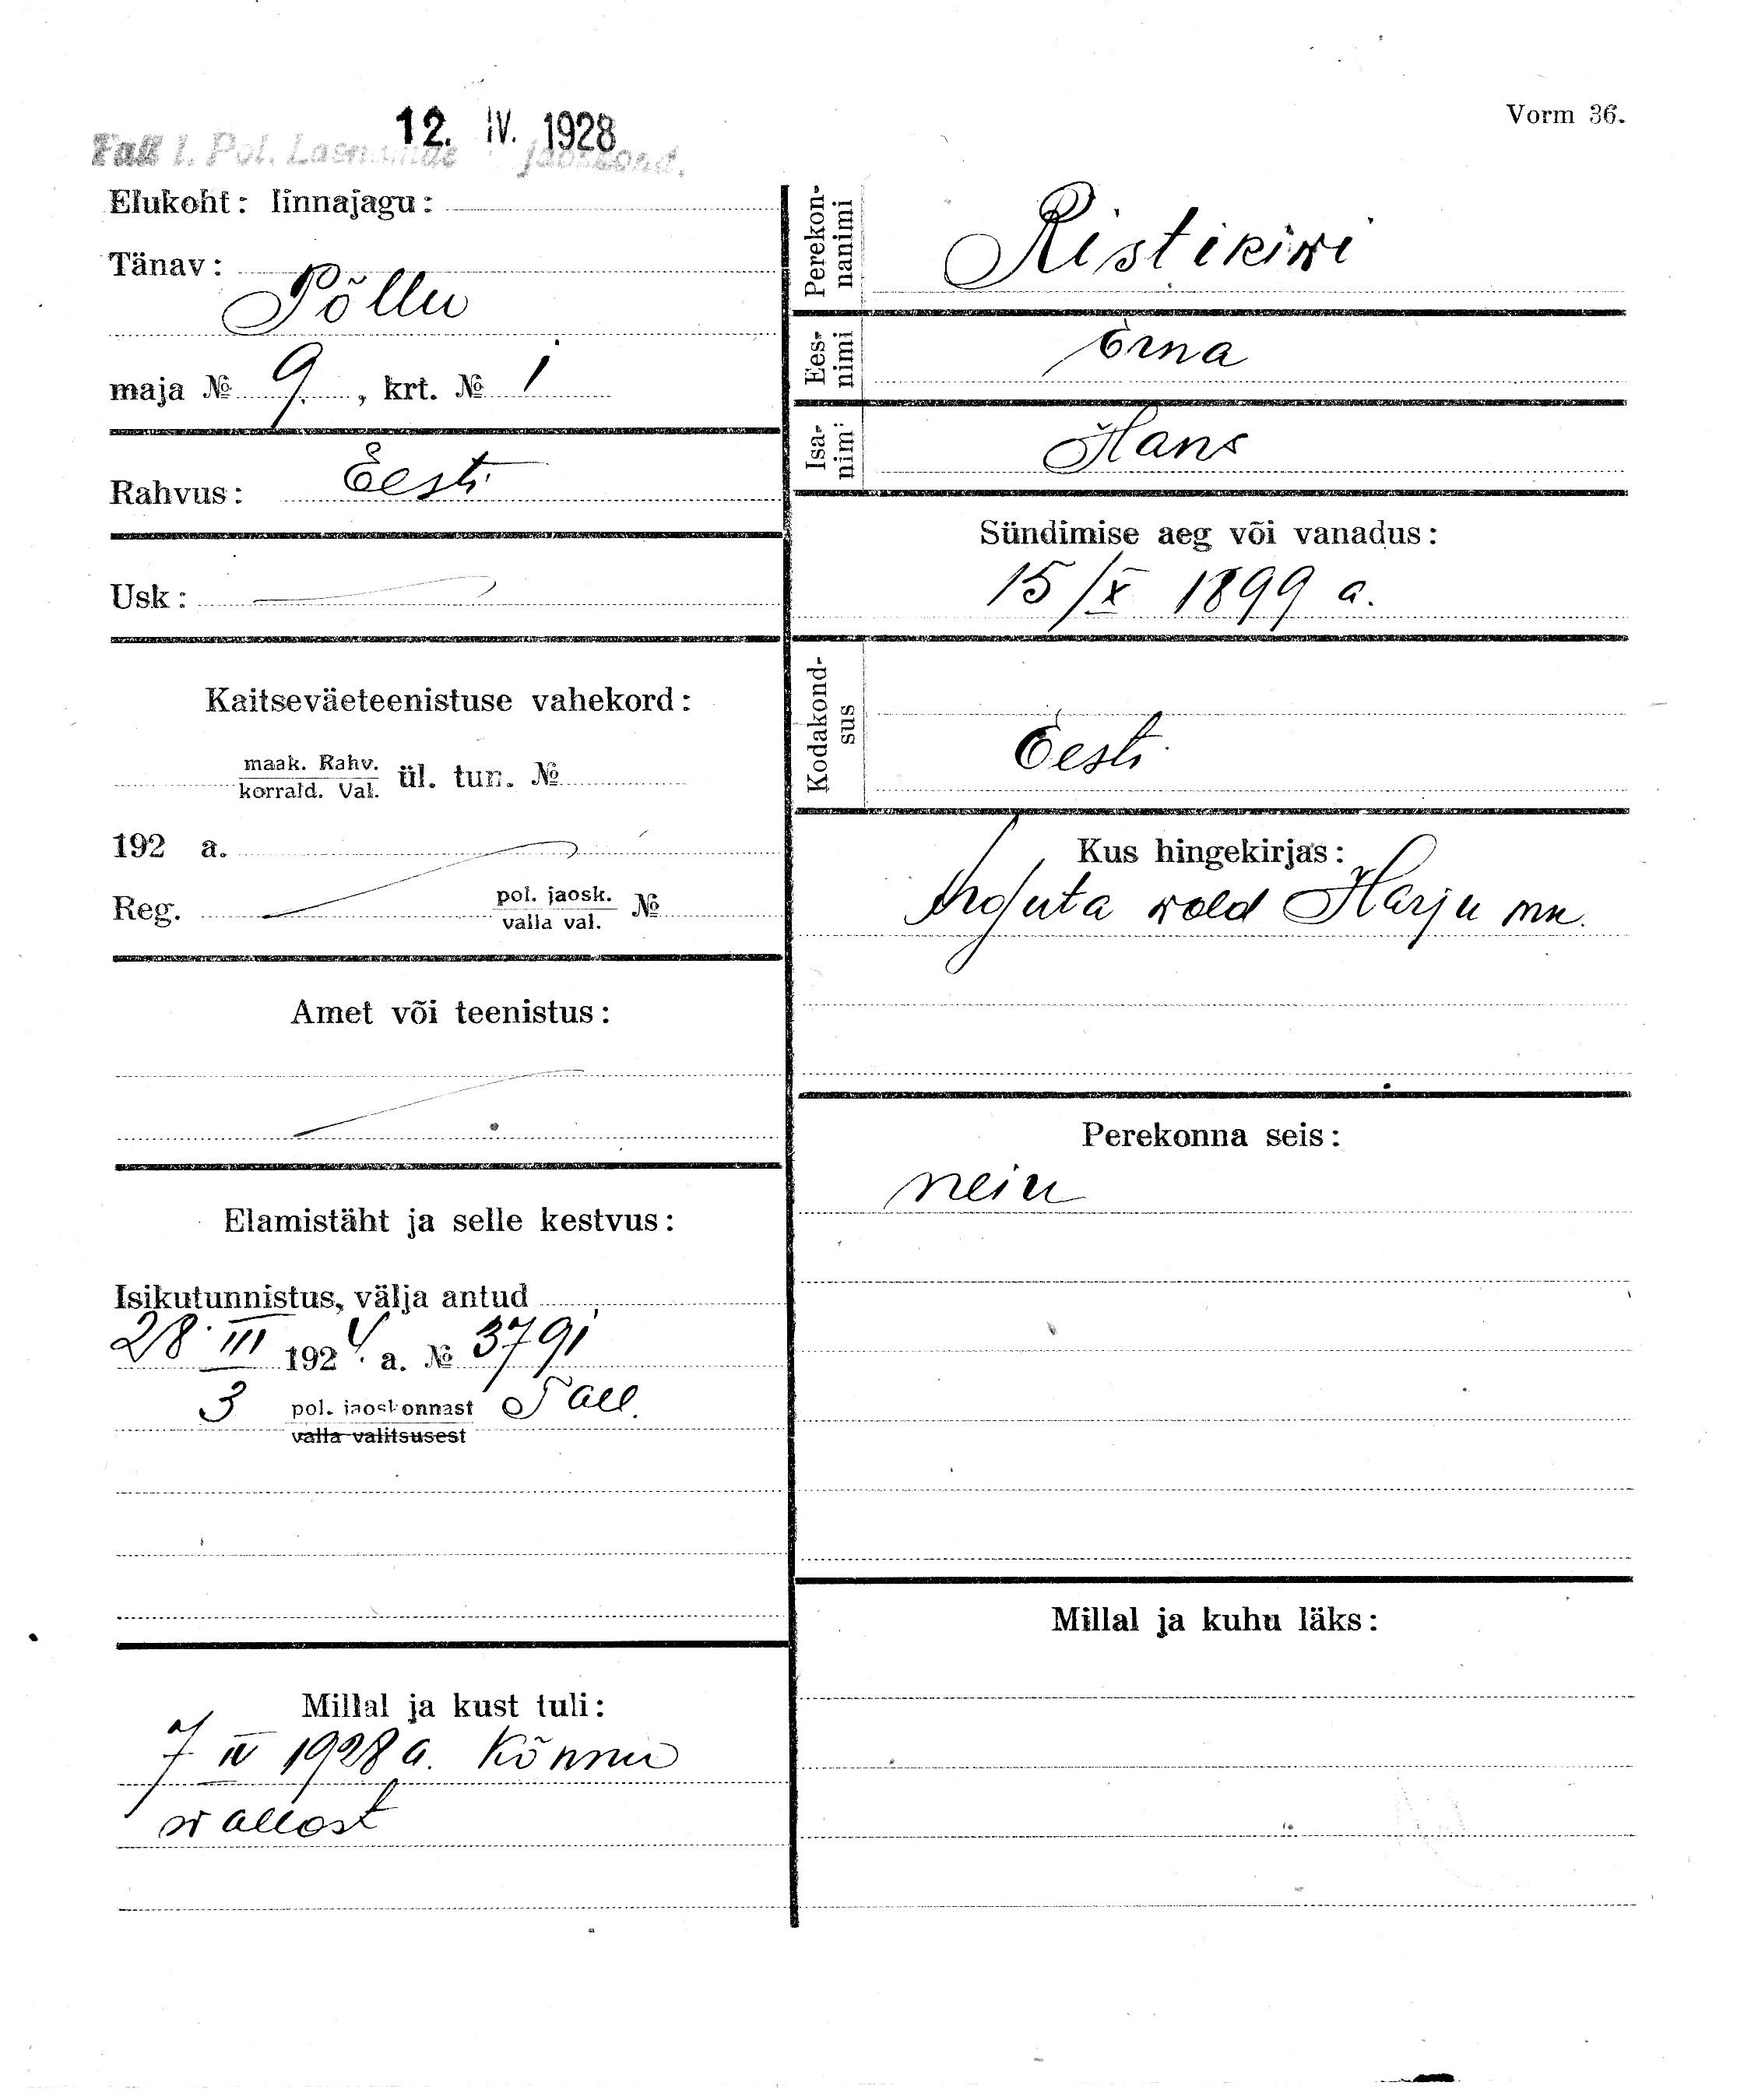 Vorm 36.
12. IV. 1928
Tall. Pol. Lasnamäe jaoskond.
Elukoht: linnajagu:
Tänav:
Põllu
maja № 9. , krt. № 1
Rahvus: Eesti
Usk:
Kaitseväeteenistuse vahekord:
maak. Rahv.
korrald. Val. ül. tun. №
192 a.
Reg. pol. jaosk. №
valla val.
Amet või teenistus:
Elamistäht ja selle kestvus:
Isikutunnistus, välja antud
28. III 1924. a. № 3791
3 pol. jaoskonnast Tall.
valla valitsusest
Millal ja kust tuli:
7 IV 1928 a. Kõnnu
wallast
Perekon-
nanimi
Ristikiwi
Ees-
nimi
Erna
Isa-
nimi
Hans
Sündimise aeg või vanadus:
15/X 1899 a.
Kodakond-
sus
Eesti
Kus hingekirjas:
wald Harju mk.
Perekonna seis:
neiu
Millal ja kuhu läks: